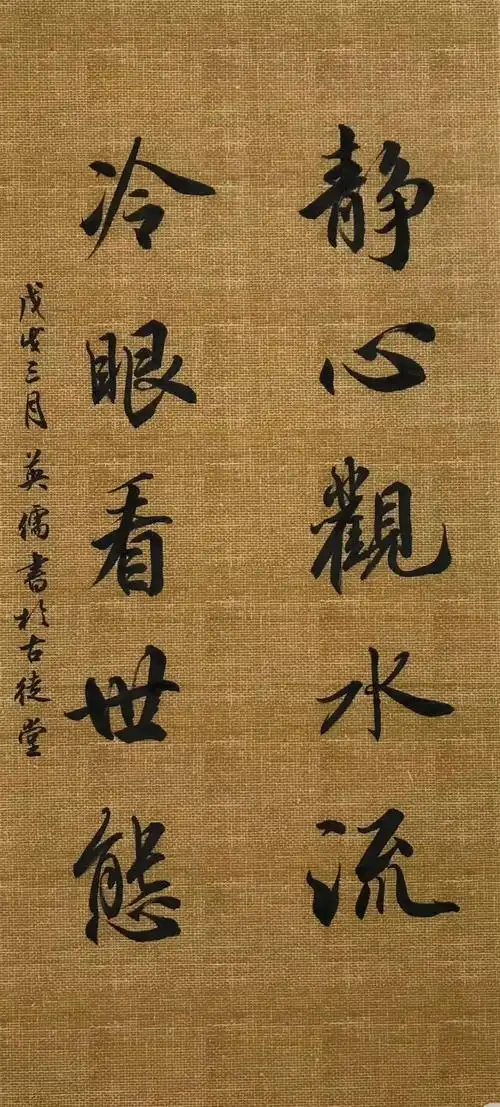 静心觀水流
冷眼看世態
戊戌三月英儒書於古徒堂